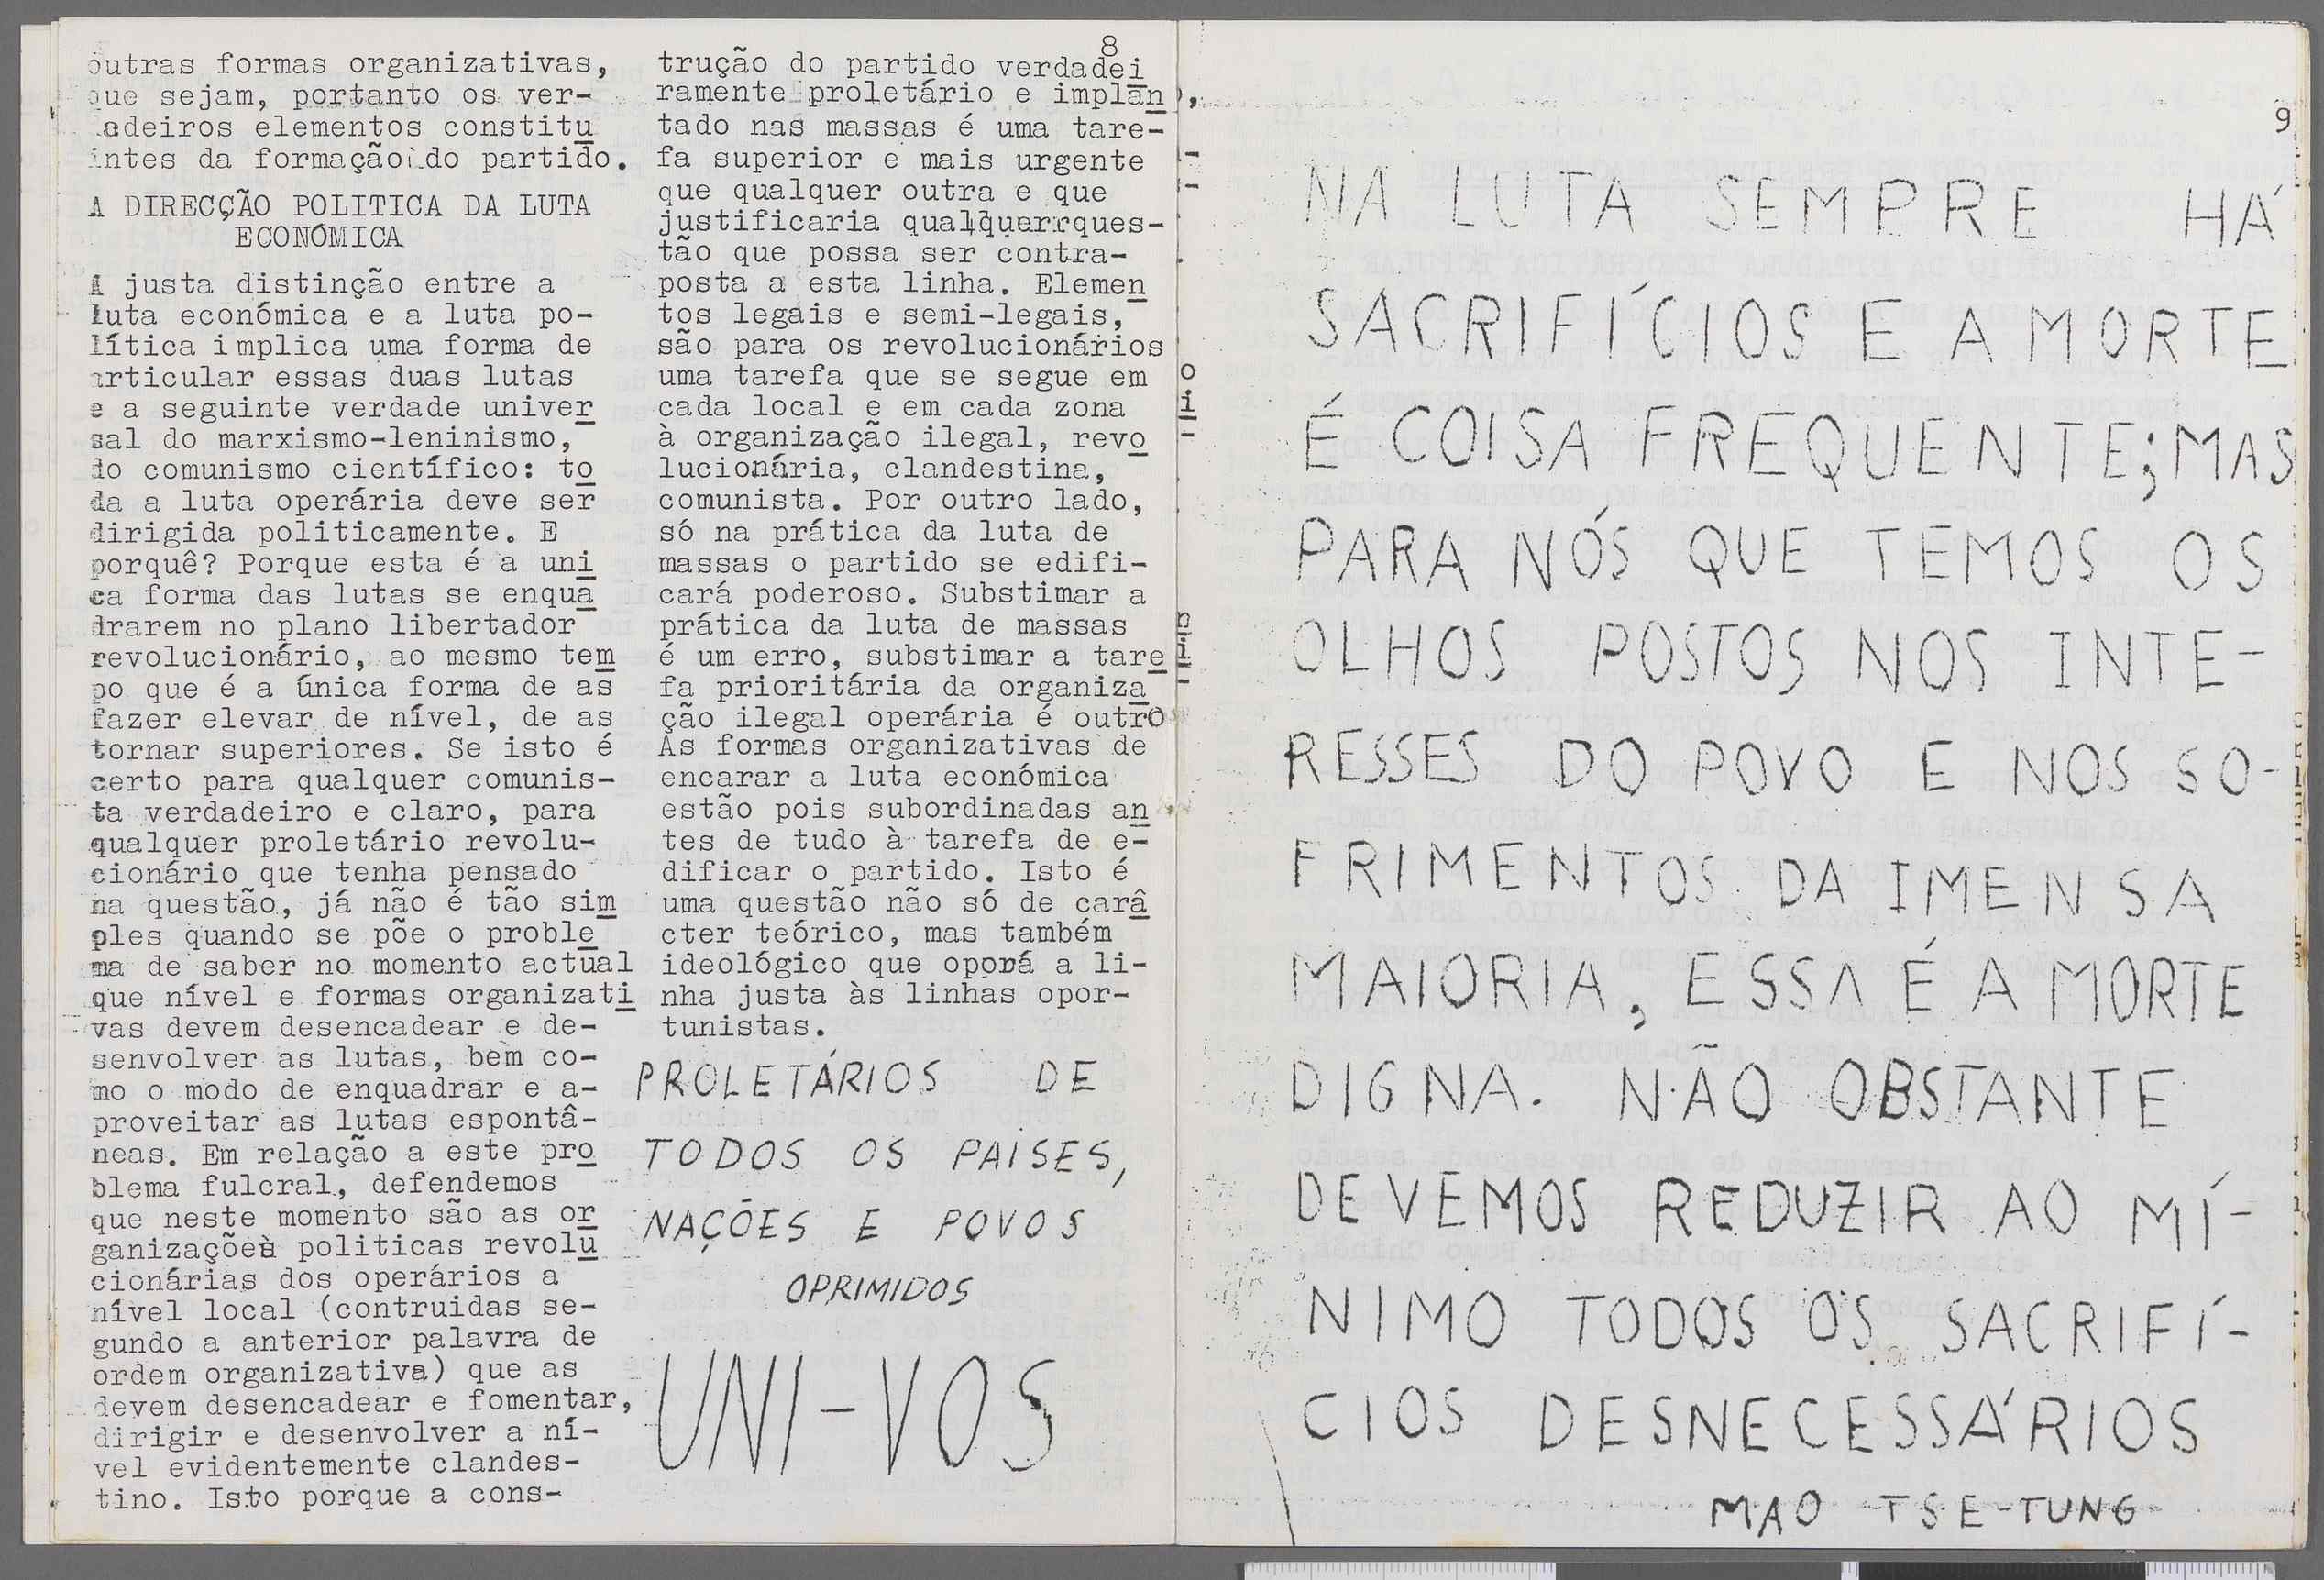 8
outras formas organizativas,
que sejam, portanto os ver-
dadeiros elementos constitu
intes da formação do partido.
A DIRECÇÃO POLITICA DA LUTA
ECONÓMICA
A justa distinção entre a
luta económica e a luta po-
lítica implica uma forma de
articular essas duas lutas
e a seguinte verdade univer
sal do marxismo-leninismo,
do comunismo científico: to
da a luta operária deve ser
dirigida politicamente. E
porquê? Porque esta é a uni
ca forma das lutas se enqua
drarem no plano libertador
revolucionário, ao mesmo tem
po que é a única forma de as
fazer elevar de nível, de as
tornar superiores. Se isto é
certo para qualquer comunis-
ta verdadeiro e claro, para
qualquer proletário revolu-
cionário que tenha pensado
na questão, já não é tão sim
ples quando se põe o proble
ma de saber no momento actual
que nível e formas organizati
vas devem desencadear e de-
senvolver as lutas, bem co-
mo o modo de enquadrar e a-
proveitar as lutas espontâ-
neas. Em relação a este pro
blema fulcral, defendemos
que neste momento são as or
ganizaçõeà politicas revolu
cionárias dos operários a
nível local (contruidas se-
gundo a anterior palavra de
ordem organizativa) que as
devem desencadear e fomentar,
dirigir e desenvolver a ní-
vel evidentemente clandes-
tino. Isto porque a cons-
trução do partido verdadei
ramente proletário e implan
tado nas massas é uma tare-
fa superior e mais urgente
que qualquer outra e que
justificaria qualquerrques-
tão que possa ser contra-
posta a esta linha. Elemen
tos legais e semi-legais,
são para os revolucionários
uma tarefa que se segue em
cada local e em cada zona
à organização ilegal, revo
lucionária, clandestina,
comunista. Por outro lado,
só na prática da luta de
massas o partido se edifi-
cará poderoso. Substimar a
prática da luta de massas
é um erro, substimar a tare
fa prioritária da organiza
ção ilegal operária é outro
As formas organizativas de
encarar a luta económica
estão pois subordinadas an
tes de tudo à tarefa de e-
dificar o partido. Isto é
uma questão não só de carâ
cter teórico, mas também
ideológico que oporá a li-
nha justa às linhas opor-
tunistas.
PROLETÁRIOS DE
TODOS OS PAISES,
NAÇÕES E POVOS
OPRIMIDOS
UNI-VOS
9
NA LUTA SEMPRE HÁ
SACRIFÍCIOS E A MORTE
É COISA FREQUENTE; MAS
PARA NÓS QUE TEMOS OS
OLHOS POSTOS NOS INTE-
RESSES DO POVO E NOS SO-
FRIMENTOS DA IMENSA
MAIORIA, ESSA É A MORTE
DIGNA. NÃO OBSTANTE
DEVEMOS REDUZIR AO MÍ-
NIMO TODOS OS SACRIFÍ-
CIOS DESNECESSÁRIOS
MAO TSE-TUNG